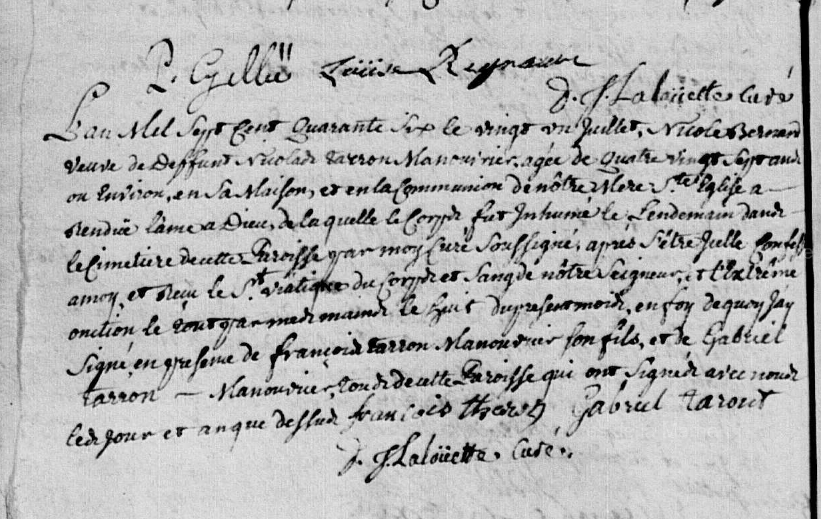 P. Gellÿ Loüise Regnault
d. J. Laloüette Curé
L'an Mil Sept Cent Quarante Six le vingt un Juillet, Nicole Bernard
veuve de Deffunt Nicolas Tarron Manouvrier, agée de Quatre vingt Sept ans
ou Environ, en Sa Maison, et en la Communion de nôtre Mere Ste Eglise a
rendüe l'ame a Dieu, de laquelle le Corps fut Inhumé le Lendemain dans
le Cimetiere de cette Paroisse par moy Curé Soussigné, aprés S'être Icelle Confessé
a moy, et reçu le St. viatique du Corps et Sang de nôtre Seigneur, et l'Extrême
onction le tout par mes mains le huit du present mois, en foy de quoy Jay
Signé, en presence de françois Tarron Manouvrier Son fils, et de Gabriel
Tarron Manouvrier, tous de cette Paroisse qui ont Signés avec nous
les Jour et an que dessus françois theron Gabriel Taront
d. J. Laloüette. Curé.